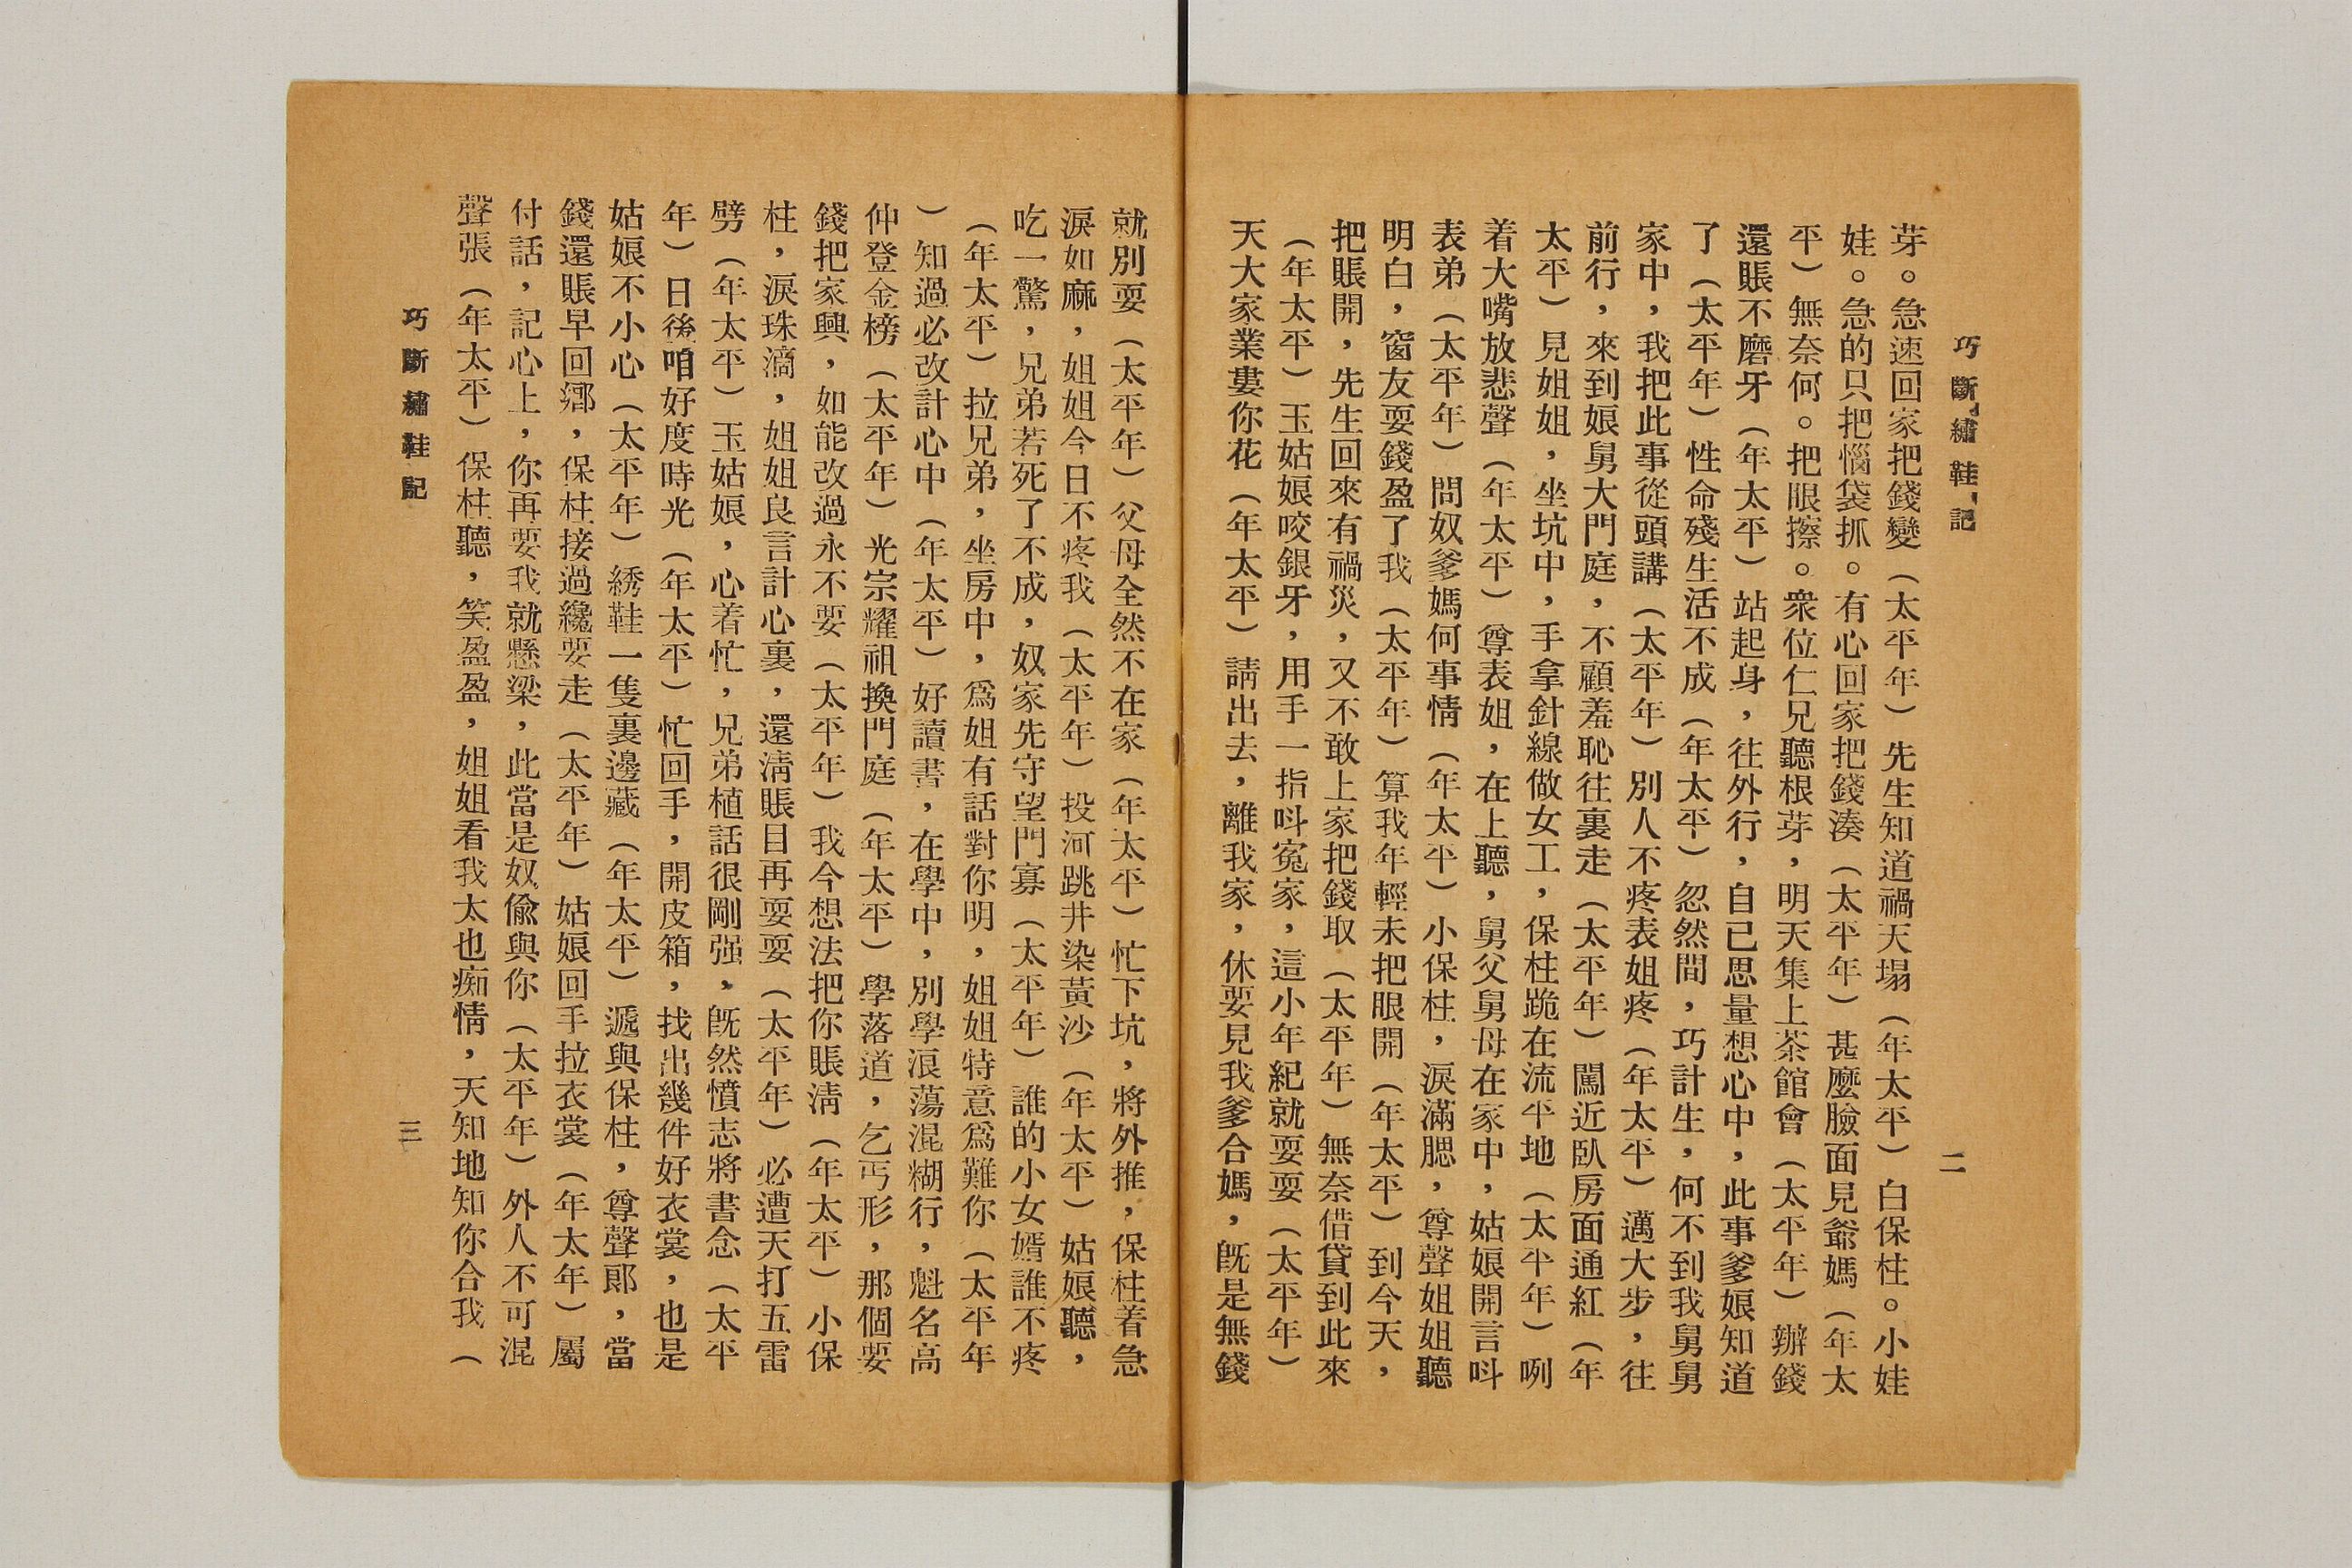 巧斷繡鞋記
二
芽。急速回家把錢變（太平年）先生知道禍天塌（年太平）白保柱。小娃
娃。急的只把惱袋抓。有心回家把錢湊（太平年）甚麼臉面見爺媽（年太
平）無奈何。把眼擦。衆位仁兄聽根芽，明天集上茶館會（太平年）辦錢
還賬不磨牙（年太平）站起身，往外行，自已思量想心中，此事爹娘知道
了（太平年）性命殘生活不成（年太平）忽然間，巧計生，何不到我舅舅
家中，我把此事從頭講（太平年）別人不疼表姐疼（年太平）邁大步，往
前行，來到娘舅大門庭，不顧羞恥往裏走（太平年）闖近臥房面通紅（年
太平）見姐姐，坐坑中，手拿針線做女工，保柱跪在流平地（太平年）咧
着大嘴放悲聲（年太平）尊表姐，在上聽，舅父舅母在家中，姑娘開言呌
表弟（太平年）問奴爹媽何事情（年太平）小保柱，淚滿腮，尊聲姐姐聽
明白，窗友耍錢盈了我（太平年）算我年輕未把眼開（年太平）到今天，
把賬開，先生回來有禍災，又不敢上家把錢取（太平年）無奈借貸到此來
（年太平）玉姑娘咬銀牙，用手一指呌寃家，這小年紀就耍耍（太平年）
天大家業婁你花（年太平）請出去，離我家，休要見我爹合媽，旣是無錢
就別耍（太平年）父母全然不在家（年太平）忙下坑，將外推，保柱着急
淚如麻，姐姐今日不疼我（太平年）投河跳井染黃沙（年太平）姑娘聽，
吃一驚，兄弟若死了不成，奴家先守望門寡（太平年）誰的小女婿誰不疼
（年太平）拉兄弟，坐房中，爲姐有話對你明，姐姐特意爲難你（太平年
）知過必改計心中（年太平）好讀書，在學中，別學浪蕩混糊行，魁名高
仲登金榜（太平年）光宗耀祖換門庭（年太平）學落道，乞丐形，那個要
錢把家興，如能改過永不要（太平年）我今想法把你賬淸（年太平）小保
柱，淚珠滴，姐姐良言計心裏，還淸賬目再耍耍（太平年）必遭天打五雷
劈（年太平）玉姑娘，心着忙，兄弟植話很剛强，旣然憤志將書念（太平
年）日後咱好度時光（年太平）忙回手，開皮箱，找出幾件好衣裳，也是
姑娘不小心（太平年）綉鞋一隻裏邊藏（年太平）遞與保柱，尊聲郎，當
錢還賬早回鄉，保柱接過纔要走（太平年）姑娘回手拉衣裳（年太年）屬
付話，記心上，你再要我就懸梁，此當是奴偸與你（太平年）外人不可混
聲張（年太平）保柱聽，笑盈盈，姐姐看我太也痴情，天知地知你合我（
巧斷繡鞋記
三